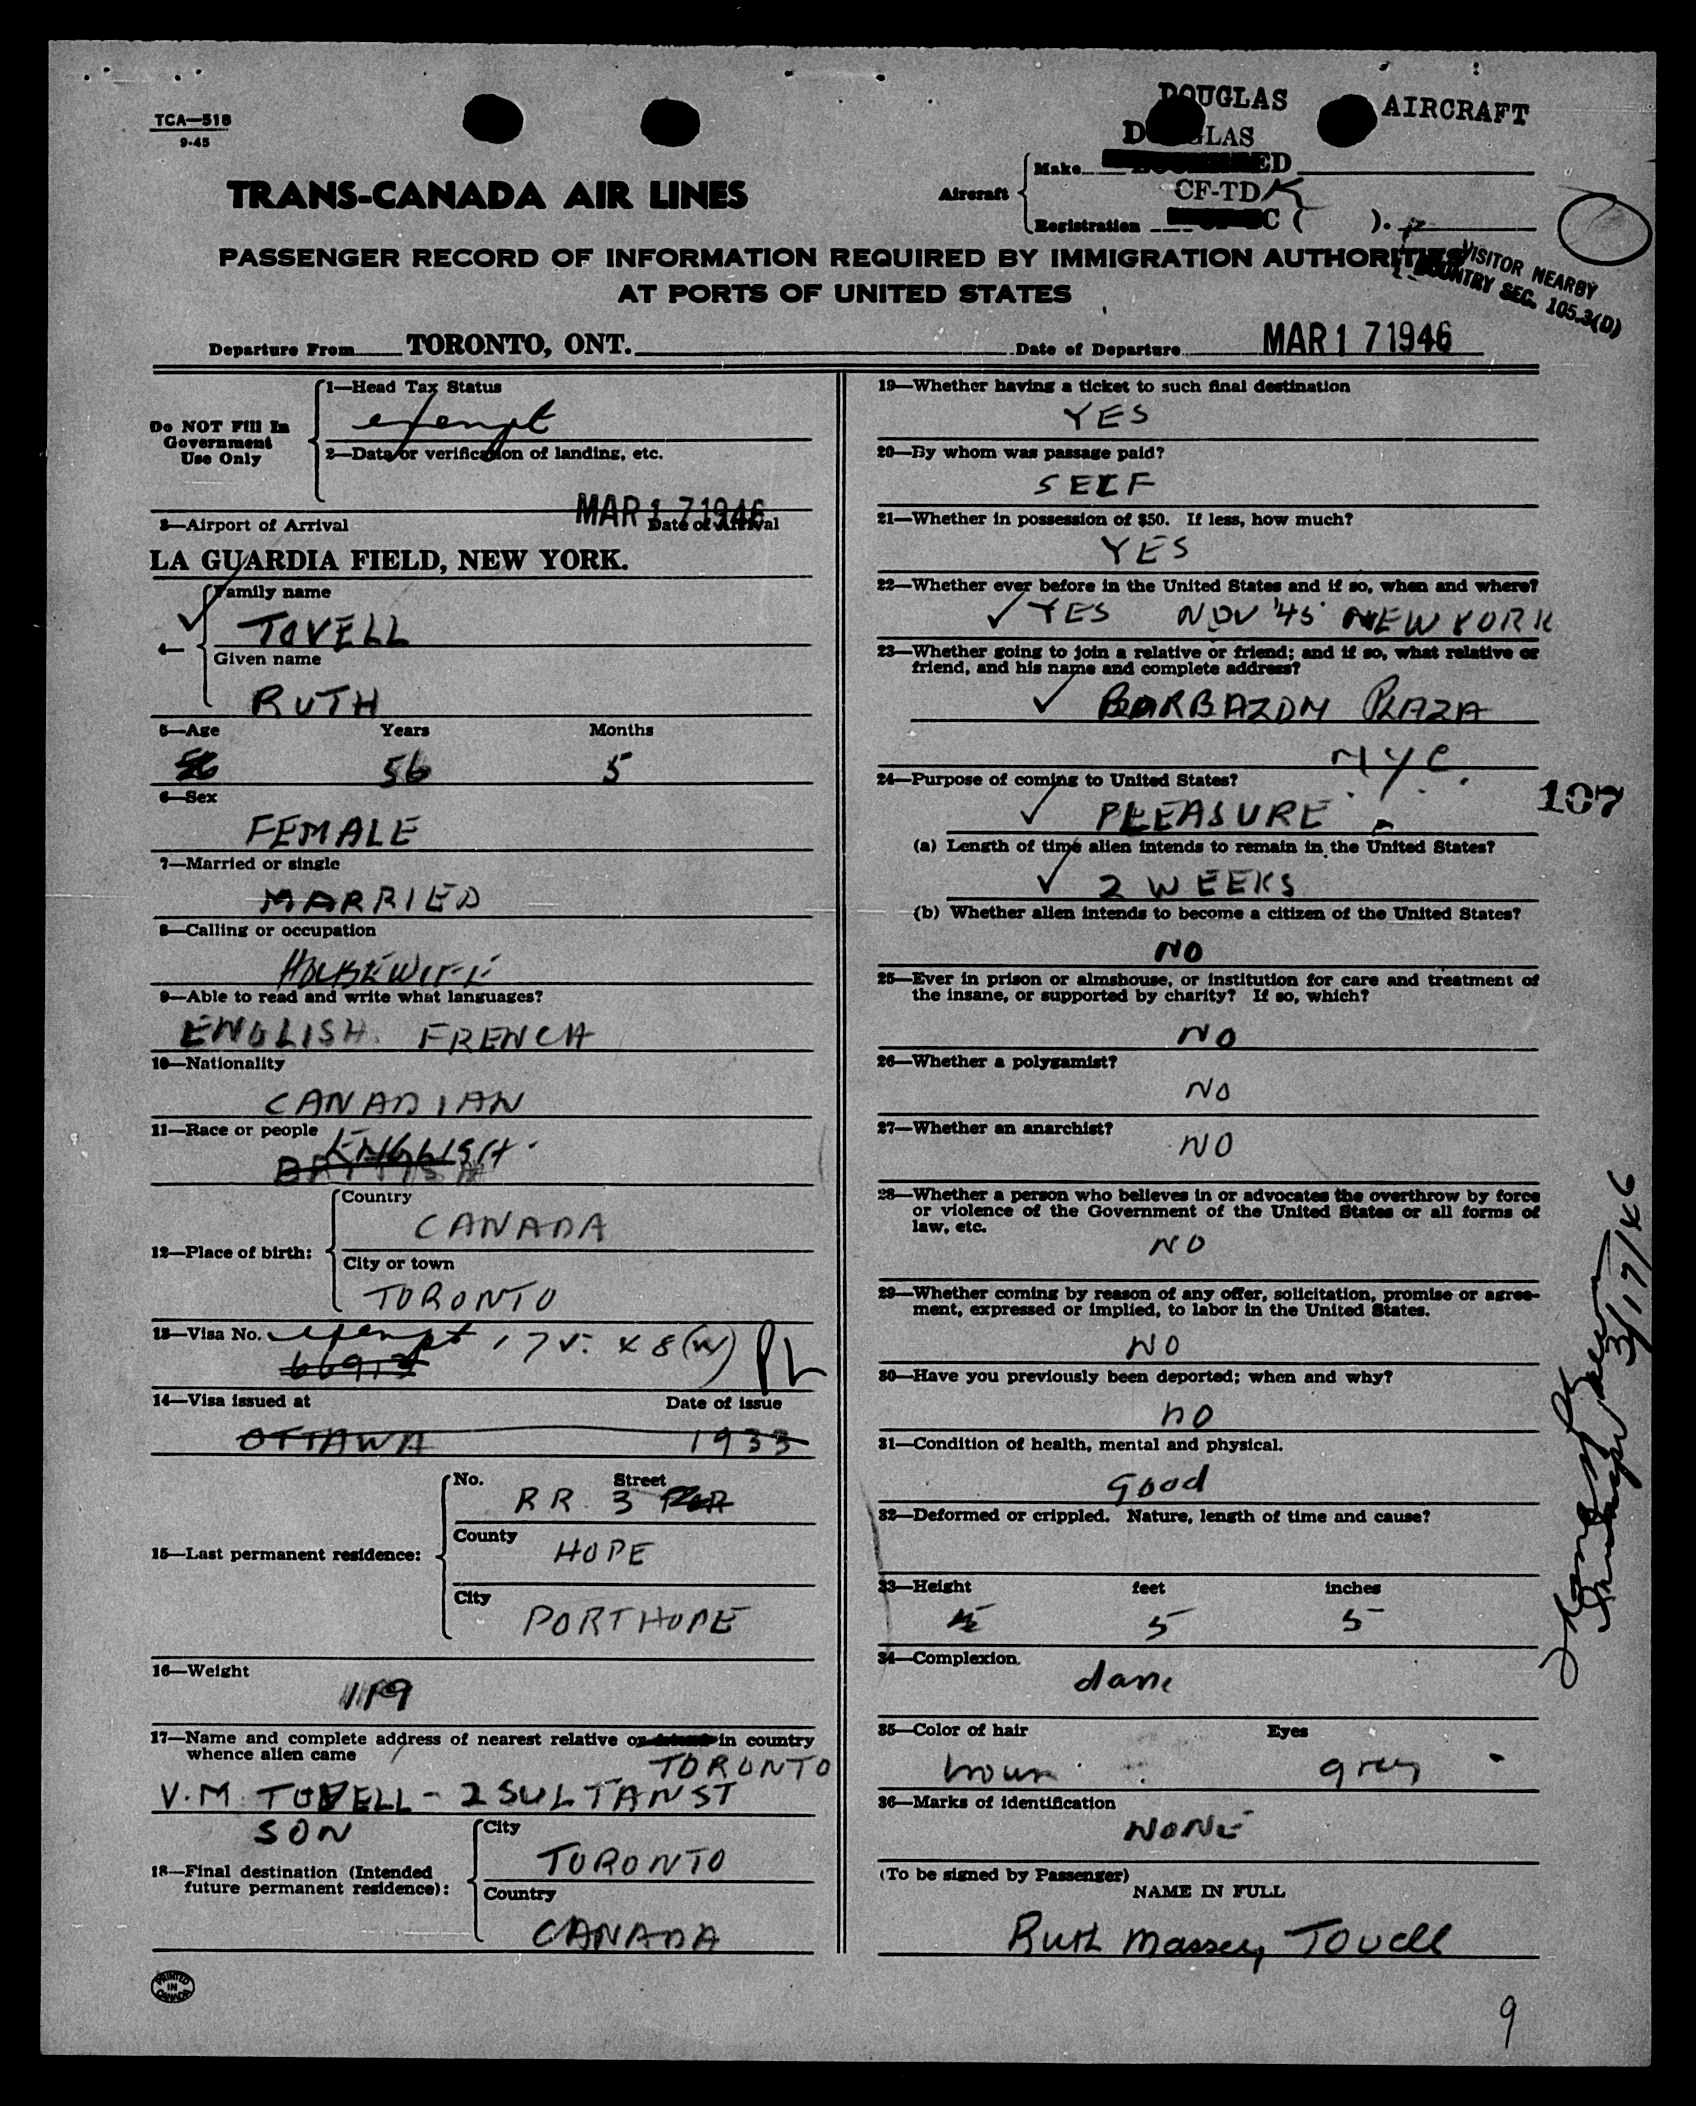 TCA—518
9-45
DOUGLAS AIRCRAFT
DOUGLAS
TRANS-CANADA AIR LINES
Aircraft
Make ED
CF-TDK
Registration C ( ).
PASSENGER RECORD OF INFORMATION REQUIRED BY IMMIGRATION AUTHORITIES
AT PORTS OF UNITED STATES
VISITOR NEARBY
COUNTRY SEC. 105.3(D)
Departure From TORONTO, ONT. Date of Departure MAR 17 1946
Do NOT Fill In
Government
Use Only
1—Head Tax Status
exempt
2—Data or verification of landing, etc.
MAR 17 1946
3—Airport of Arrival Date of Arrival
LA GUARDIA FIELD, NEW YORK.
4—
Family name
TOVELL
Given name
RUTH
5—Age Years Months
56 56 5
6—Sex
FEMALE
7—Married or single
MARRIED
8—Calling or occupation
HOUSEWIFE
9—Able to read and write what languages?
ENGLISH. FRENCH
10—Nationality
CANADIAN
11—Race or people
ENGLISH.
BRITISH
12—Place of birth:
Country
CANADA
City or town
TORONTO
13—Visa No. exempt 175. x 8(w) PL
66913
14—Visa issued at Date of issue
OTTAWA 1933
15—Last permanent residence:
No. Street
RR 3 POR
County
HOPE
City
PORT HOPE
16—Weight
119
17—Name and complete address of nearest relative or friend in country
whence alien came
TORONTO
V.M. TOVELL - 2 SULTAN ST
SON
18—Final destination (Intended
future permanent residence):
City
TORONTO
Country
CANADA
PRINTED
IN
CANADA
19—Whether having a ticket to such final destination
YES
20—By whom was passage paid?
SELF
21—Whether in possession of $50. If less, how much?
YES
22—Whether ever before in the United States and if so, when and where?
YES NOV '45 NEW YORK
23—Whether going to join a relative or friend; and if so, what relative or
friend, and his name and complete address?
BARBAZON PLAZA
NYC.
24—Purpose of coming to United States?
PLEASURE
107
(a) Length of time alien intends to remain in the United States?
2 WEEKS
(b) Whether alien intends to become a citizen of the United States?
NO
25—Ever in prison or almshouse, or institution for care and treatment of
the insane, or supported by charity? If so, which?
NO
26—Whether a polygamist?
NO
27—Whether an anarchist?
NO
28—Whether a person who believes in or advocates the overthrow by force
or violence of the Government of the United States or all forms of
law, etc.
NO
29—Whether coming by reason of any offer, solicitation, promise or agree-
ment, expressed or implied, to labor in the United States.
NO
30—Have you previously been deported; when and why?
NO
31—Condition of health, mental and physical.
good
32—Deformed or crippled. Nature, length of time and cause?
33—Height feet inches
5 5
34—Complexion.
35—Color of hair Eyes
grey
36—Marks of identification
NONE
(To be signed by Passenger)
NAME IN FULL
Ruth Massey Tovell
9